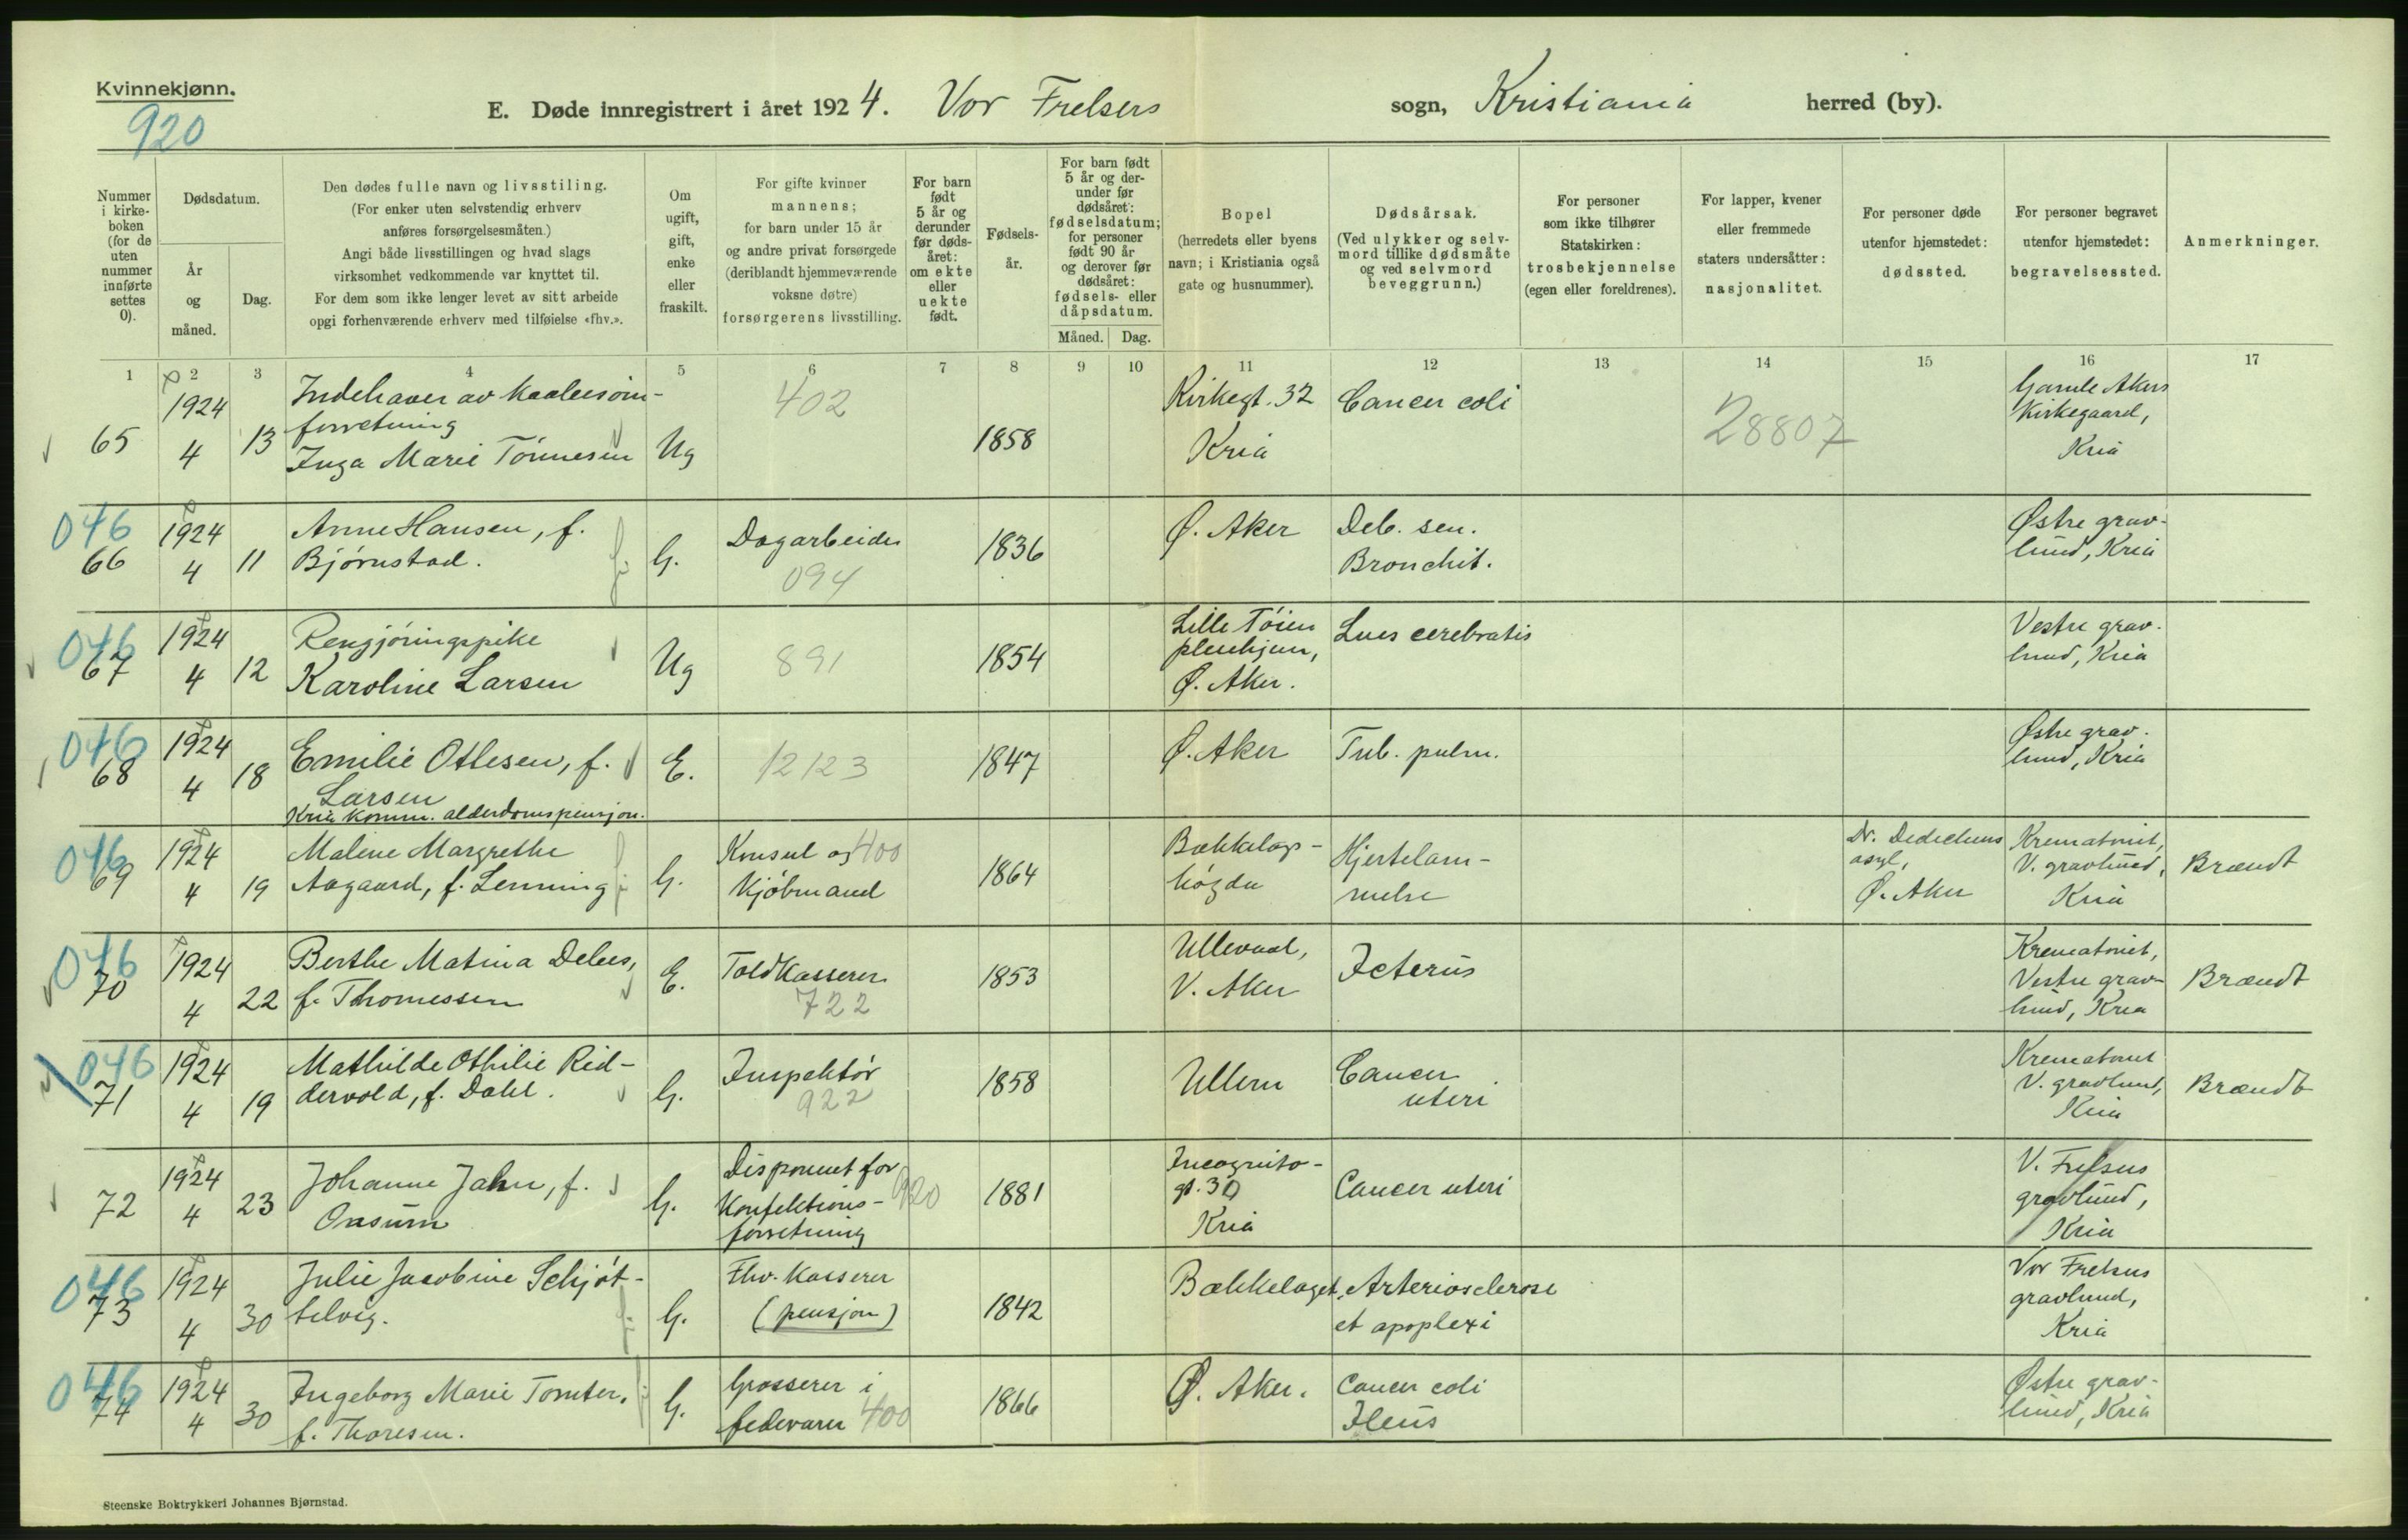 Kvinnekjønn.
920
E. Døde innregistrert i året 1924. Vor Frelsers sogn, Kristiania herred (by).
Nummer i kirke-boken (for de uten nummer innførte settes 0).
Dødsdatum.
År og måned.
Dag.
Den dødes fulle navn og livsstiling.
(For enker uten selvstendig erhverv
anføres forsørgelsesmåten.)
Angi både livsstillingen og hvad slags
virksomhet vedkommende var knyttet til.
For dem som ikke lenger levet av sitt arbeide
opgi forhenværende erhverv med tilføielse «fhv.».
Om ugift, gift, enke eller fraskilt.
For gifte kvinner
mannens;
for barn under 15 år
og andre privat forsørgede
(deriblandt hjemmeværende
voksne døtre)
forsørgerens livsstilling.
For barn født 5 år og derunder før døds-året: om ekte eller uekte født.
Fødsels-år.
For barn født 5 år og der-under før dødsåret: fødselsdatum; for personer født 90 år og derover før dødsåret: fødsels- eller dåpsdatum.
Måned. Dag.
Bopel
(herredets eller byens
navn; i Kristiania også
gate og husnummer).
Dødsårsak.
(Ved ulykker og selv-
mord tillike dødsmåte
og ved selvmord
beveggrunn.)
For personer
som ikke tilhører
Statskirken:
trosbekjennelse
(egen eller foreldrenes).
For lapper, kvener
eller fremmede
staters undersåtter:
nasjonalitet.
For personer døde
utenfor hjemstedet:
dødssted.
For personer begravet
utenfor hjemstedet:
begravelsessted.
Anmerkninger.
1 2 3 4 5 6 7 8 9 10 11 12 13 14 15 16 17
65
1924
4
13
Indehaver av
forretning
Inga Marie Tönnesen
Ug
402
1858
Kirkegt. 32
Kria
Cancer coli
28807
Gamle Akers
Kirkegaard,
Kria
046
66
1924
4
11
Anne Hansen, f.
Bjørnstad.
G.
Dagarbeider
094
1836
Ø. Aker
Deb. sen.
Bronchit.
Østre grav-
lund, Kria
046
67
1924
4
12
Rengjøringspike
Karoline Larsen
Ug
891
1854
Lille Töien
pleiehjem,
Ø. Aker.
Lues cerebralis
Vestre grav-
lund, Kria
046
68
1924
4
18
Emilie Ottesen, f.
Larsen
Kria Komm. alderdomspensjon.
E.
12123
1847
Ø. Aker
Tub. pulm.
Østre grav-
lund, Kria
046
69
1924
4
19
Malene Margrethe
Aagaard, f. Lenning
G.
Konsul og 400
Kjöbmand
1864
Bækkelags-
högda
Hjertelam-
melse
Dr. Dedichens
asyl,
Ø. Aker
Krematoriet,
V. gravlund,
Kria
Brændt
046
70
1924
4
22
Berthe Matina
f. Thomessen
E.
Toldkasserer
722
1853
Ullevaal,
V. Aker
Icterus
Krematoriet,
Vestre grav-
lund, Kria
Brændt
046
71
1924
4
19
Mathilde Othilie Rid-
dervold, f. Dahl.
G.
Inspektör
922
1858
Ullern
Cancer
uteri
Krematoriet
V. gravlund,
Kria
Brændt
72
1924
4
23
Johanne Jahn, f.
Onsum
G.
Disponent for
Konfektions- 920
forretning
1881
Incognito-
gt. 30
Kria
Cancer uteri
V. Frelsers
gravlund,
Kria
046
73
1924
4
30
Julie Jacobine Schjöt-
telvig.
G.
Fhv. Kasserer
(pensjon)
1842
Bækkelaget
Arteriosclerose
et apoplexi
Vor Frelsers
gravlund,
Kria
046
74
1924
4
30
Ingeborg Marie Tomter,
f. Thoresen.
G.
Grosserer i
fedevarer 400
1866
Ø. Aker.
Cancer coli
Ileus
Østre grav-
lund, Kria
Steenske Boktrykkeri Johannes Bjørnstad.